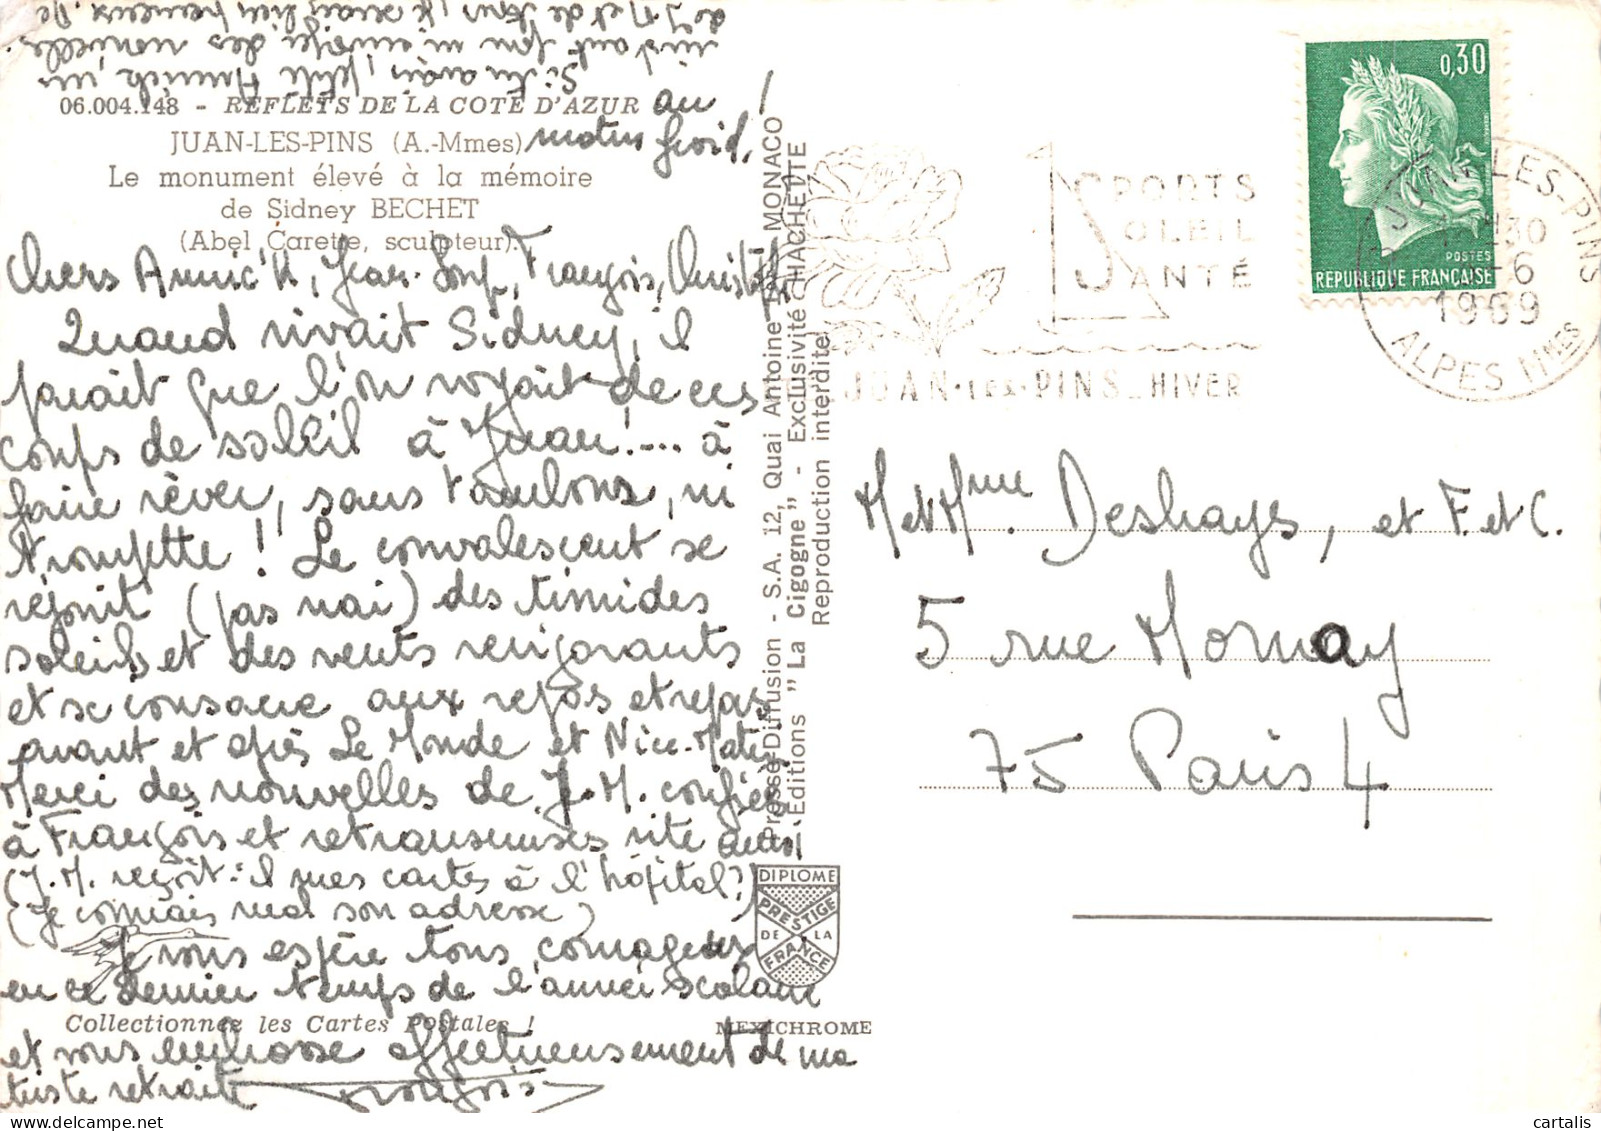 06.004.148 - REFLETS DE LA COTE D'AZUR
JUAN-LES-PINS (A.-Mmes)
Le monument élevé à la mémoire
de Sidney BECHET
(Abel Carette, sculpteur).
Chers Annick, Jean-Loup, François, Christ
Quand vivait Sidney, il
parait que l'on voyait de ces
coups de soleil à Juan!.... à
faire rêver, sans tambours, ni
trompette ! Le convalescent se
réjouit (pas vrai) des timides
soleils et des vents revigorants
et se consacre aux repos et repas,
avant et après Le Monde et Nice-Matin
Merci des nouvelles de J.M. confiées
à François et retransmises vite aussi
(J.M. reçoit-il mes cartes à l'hôpital?)
(Je connais mal son adresse)
Je vous espère tous courageux
en ce dernier temps de l'année scolaire
et vous embrasse affectueusement de ma
triste retraite
François
Si tu avais, petite Annick, un
instant pour m'envoyer des nouvelles
de J.M. et de tous, je serais bien heureux. De
au
matin froid,
Collectionnez les Cartes Postales !
MEXICHROME
DIPLOME
PRESTIGE
DE LA
FRANCE
Presse-Diffusion - S.A. 12, Quai Antoine 1er MONACO
Editions "La Cigogne" - Exclusivité CHACHETTE
Reproduction interdite
SPORTS
SOLEIL
SANTÉ
JUAN-les-PINS_HIVER
0,30
POSTES
REPUBLIQUE FRANÇAISE
JUAN-LES-PINS
30
-6
1969
ALPES MMES
M et Mme. Deshays, et F. et C.
5 rue Mornay
75 Paris 4
cartalis